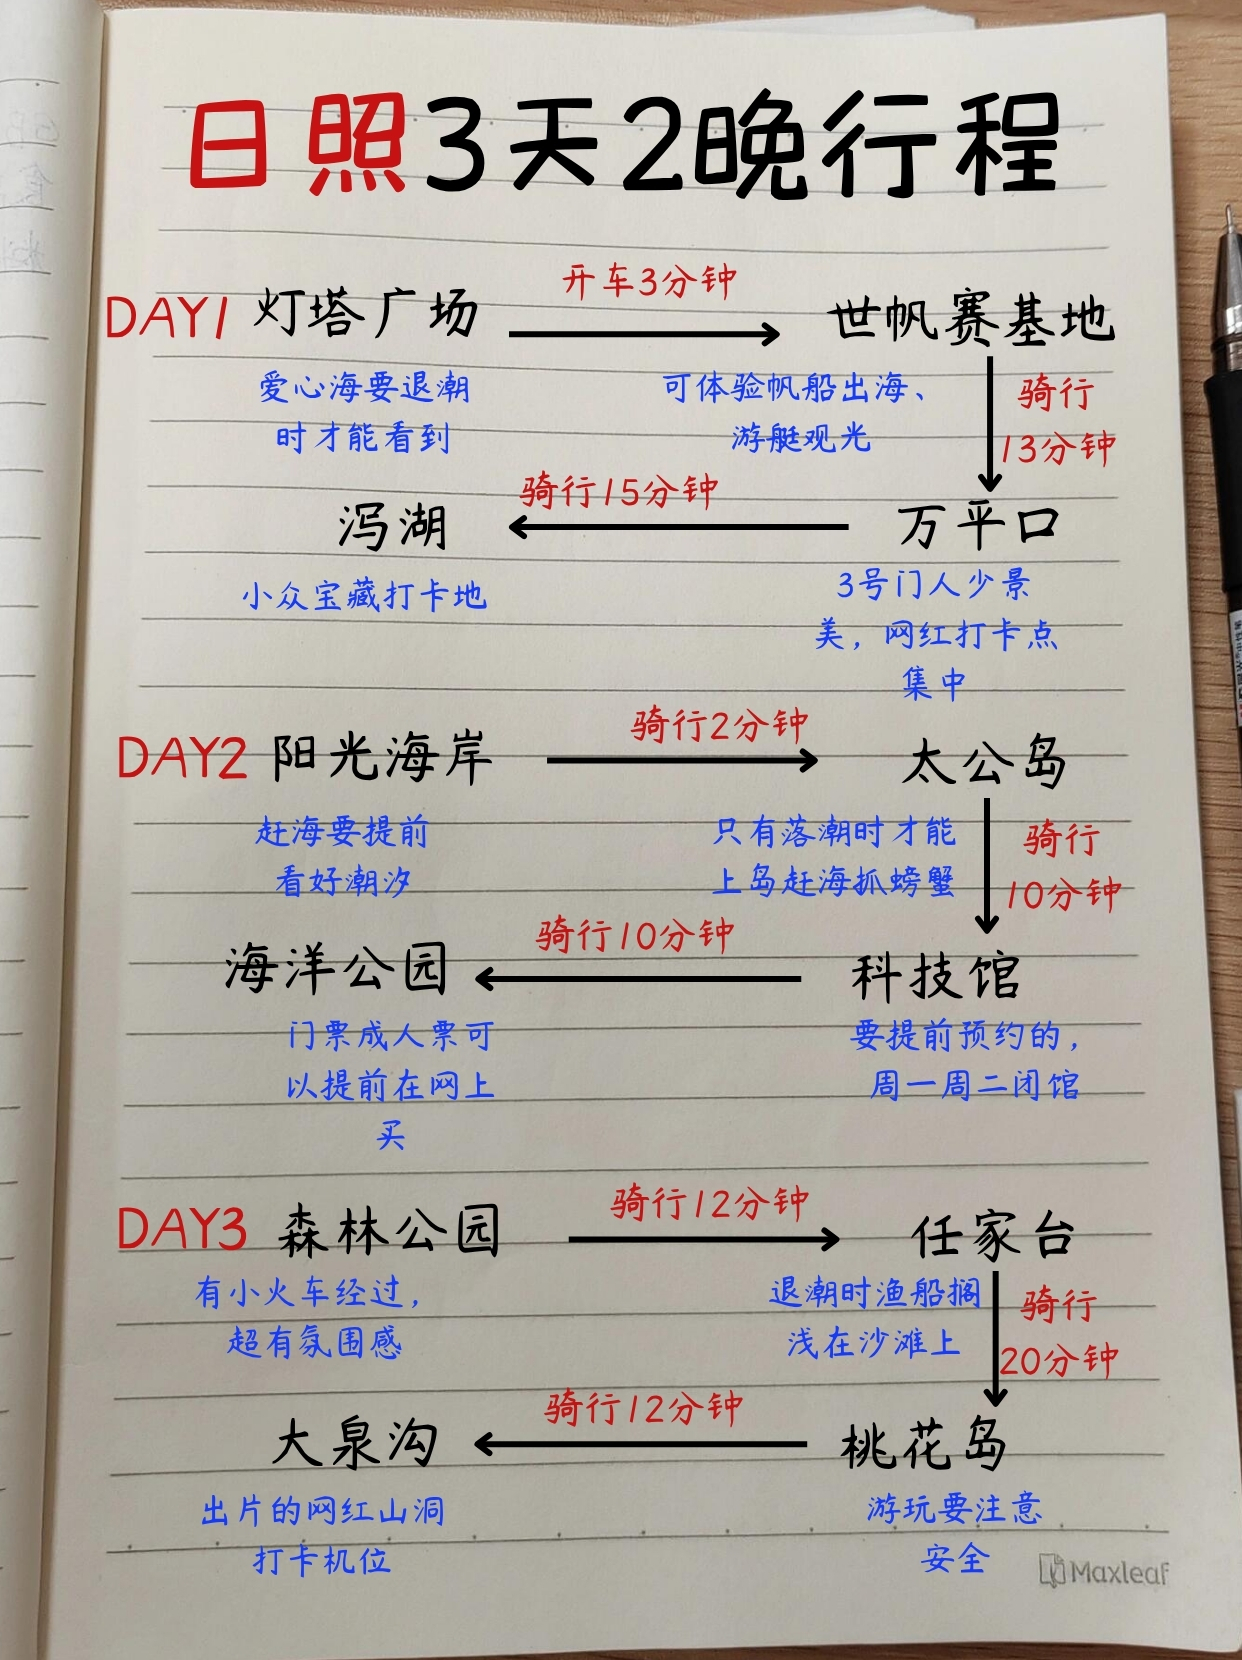 日照3天2晚行程
开车3分钟
DAY1 灯塔广场 世帆赛基地
爱心海要退潮
时才能看到
可体验帆船出海、
游艇观光
骑行
13分钟
骑行15分钟
泻湖 万平口
小众宝藏打卡地
3号门人少景
美，网红打卡点
集中
骑行2分钟
DAY2 阳光海岸 太公岛
赶海要提前
看好潮汐
只有落潮时才能
上岛赶海抓螃蟹
骑行
10分钟
骑行10分钟
海洋公园 科技馆
门票成人票可
以提前在网上
买
要提前预约的，
周一周二闭馆
骑行12分钟
DAY3 森林公园 任家台
有小火车经过，
超有氛围感
退潮时渔船搁
浅在沙滩上
骑行
20分钟
骑行12分钟
大泉沟 桃花岛
出片的网红山洞
打卡机位
游玩要注意
安全
Maxleaf